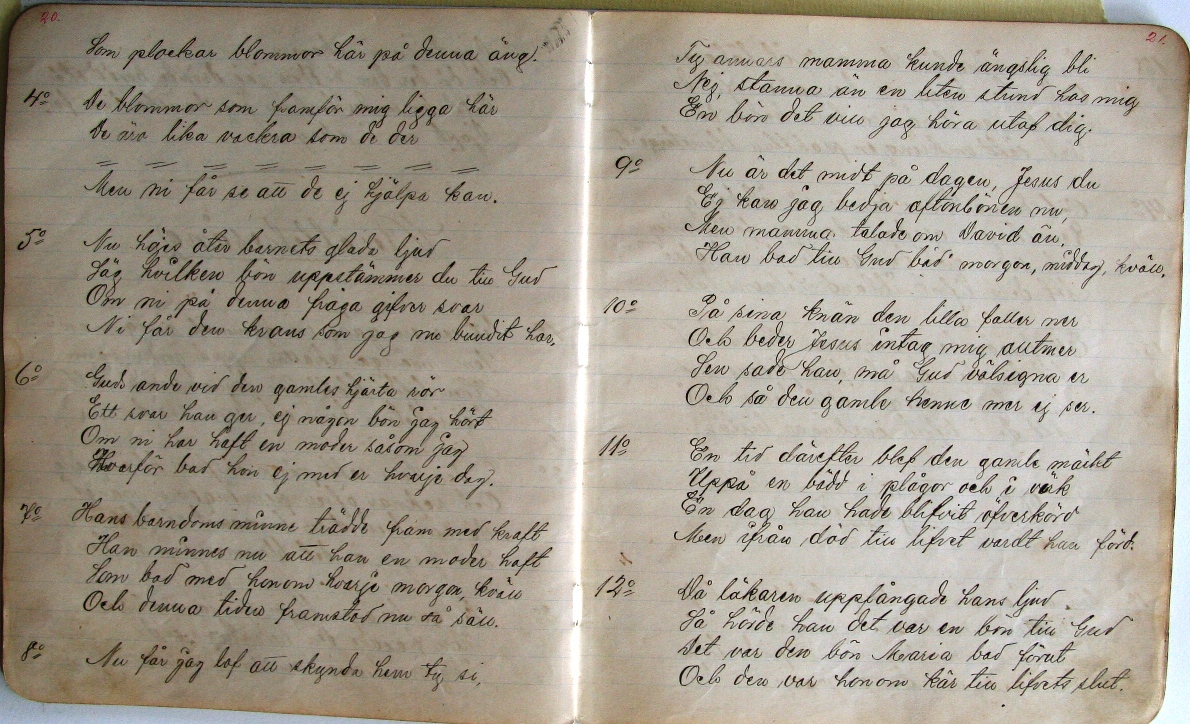 20.
Som plockar blommor här på denna äng.
4o De blommor som framför mig ligga här
De äro lika vackra som de der
= = = = = = = =
Men ni får se att de ej hjälpa kan.
5o Nu höjes åter barnets glada ljud
Säg hvilken bön uppstämmer du till Gud
Om ni på denna fråga gifver svar
Ni får den krans som jag nu bundit har,
6o Guds ande vid den gamles hjärta rör
Ett svar han ger, ej någon bön jag hört
Om ni har haft en moder såsom jag
Hvarför bad hon ej med er hvarje dag.
7o Hans barndoms minne trädde fram med kraft
Han minnes nu att han en moder haft
Som bad med honom hvarje morgon, kväll
Och denna tiden framstod nu så säll.
8o Nu får jag lof att skynda hem ty si,
21.
Ty annars mamma kunde ängslig bli
Nej, stanna än en liten stund hos mig
En bön det vill jag höra utaf dig.
9o Nu är det midt på dagen, Jesus du
Ej kan jag bedja aftonbönen nu,
Men mamma talade om David än,
Han bad till Gud båd' morgon, middag, kväll.
10o På sina knän den lilla faller ner
Och beder Jesus intag mig alltmer
Sen sade han, må Gud välsigna er
Och så den gamle henne mer ej ser.
11o En tid därefter blef den gamle märkt
Uppå en bädd i plågor och i värk
En dag han hade blifvit öfverkörd
Men ifrån död till lifvet vardt han förd.
12o Då läkaren uppfångade hans ljud
Så hörde han det var en bön till Gud
Det var den bön Maria bad förut
Och den var honom kär till lifvets slut.